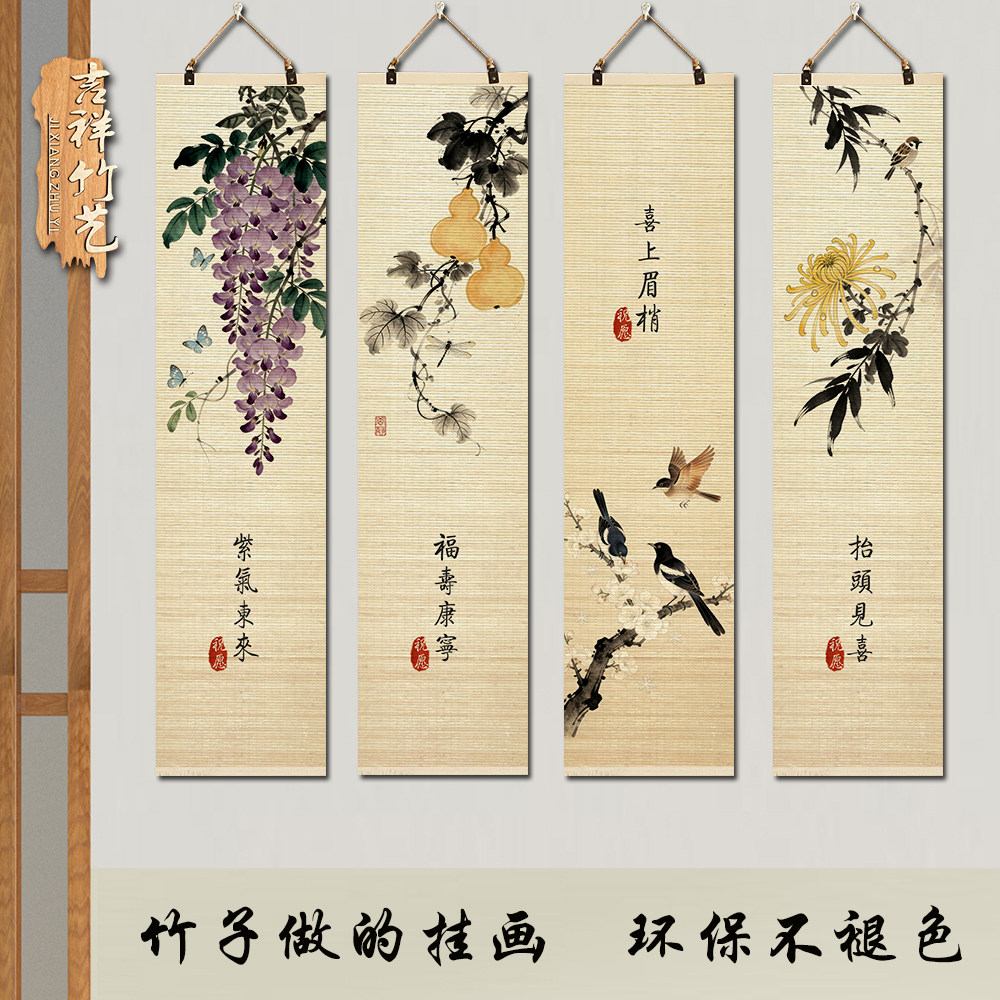 吉祥竹艺
JI XIANG ZHU YI
紫氣東來
祝愿
福壽康寧
祝愿
喜上眉梢
祝愿
抬頭見喜
祝愿
竹子做的挂画 环保不褪色